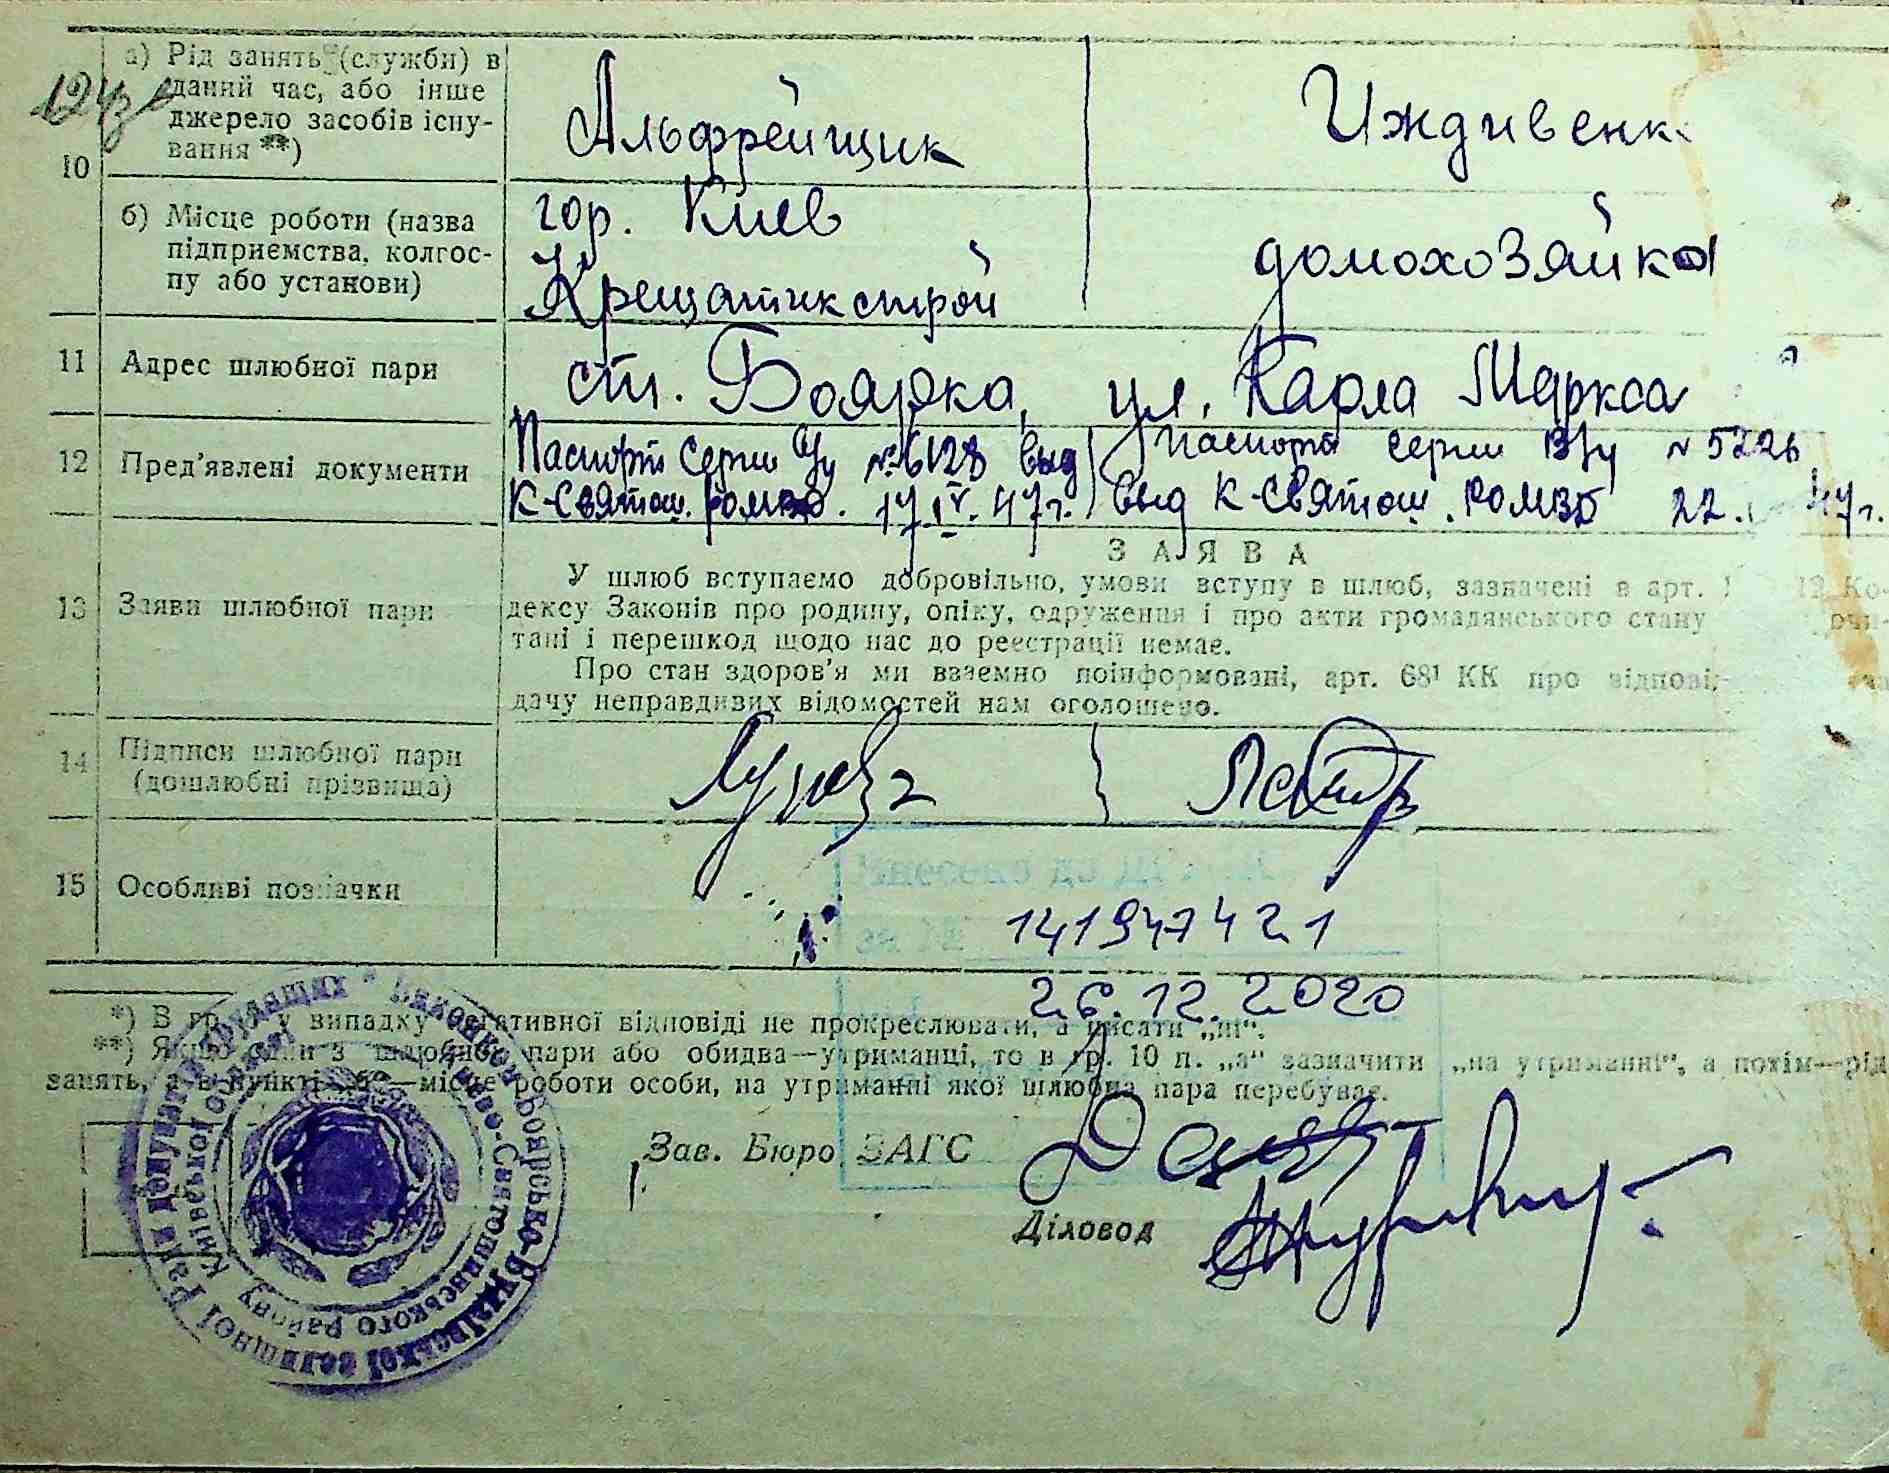 10
а) Рід занять (служби) в даний час, або інше джерело засобів існування **)
Альфрейщик
Иждивенк
б) Місце роботи (назва підприємства, колгоспу або установи)
гор. Киев
Крещатикстрой
домохозяйка
11 Адрес шлюбної пари
ст. Боярка, ул. Карла Маркса
12 Пред'явлені документи
Паспорт серии № 6128 выд
К-Святош. 17.IV.47г.
паспорт серии № 5226
выд К-Святош. 22. 47г.
13 Заяви шлюбної пари
ЗАЯВА
У шлюб вступаємо добровільно, умови вступу в шлюб, зазначені в арт. 12 Ко-
дексу Законів про родину, опіку, одруження і про акти громадянського стану
тані і перешкод щодо нас до реєстрації немає.
Про стан здоров'я ми взаємно поінформовані, арт. 68¹ КК про
дачу неправдивих відомостей нам оголошено.
14 Підписи шлюбної пари
(дошлюбні прізвища)
15 Особливі позначки
Внесено до
за №
141947421
26.12.2020
*) В гр. у випадку негативної відповіді не прокреслювати, а писати „ні“.
**) Якщо один з шлюбної пари або обидва—утриманці, то в гр. 10 п. „а“ зазначити „на утриманні“, а потім—рід
занять, а в пункті „б“—місце роботи особи, на утриманні якої шлюбна пара перебуває.
Зав. Бюро ЗАГС
Діловод
Виконком Боярсько-Будаївської селищної Ради депутатів трудящих
Києво-Святошинського району Київської області